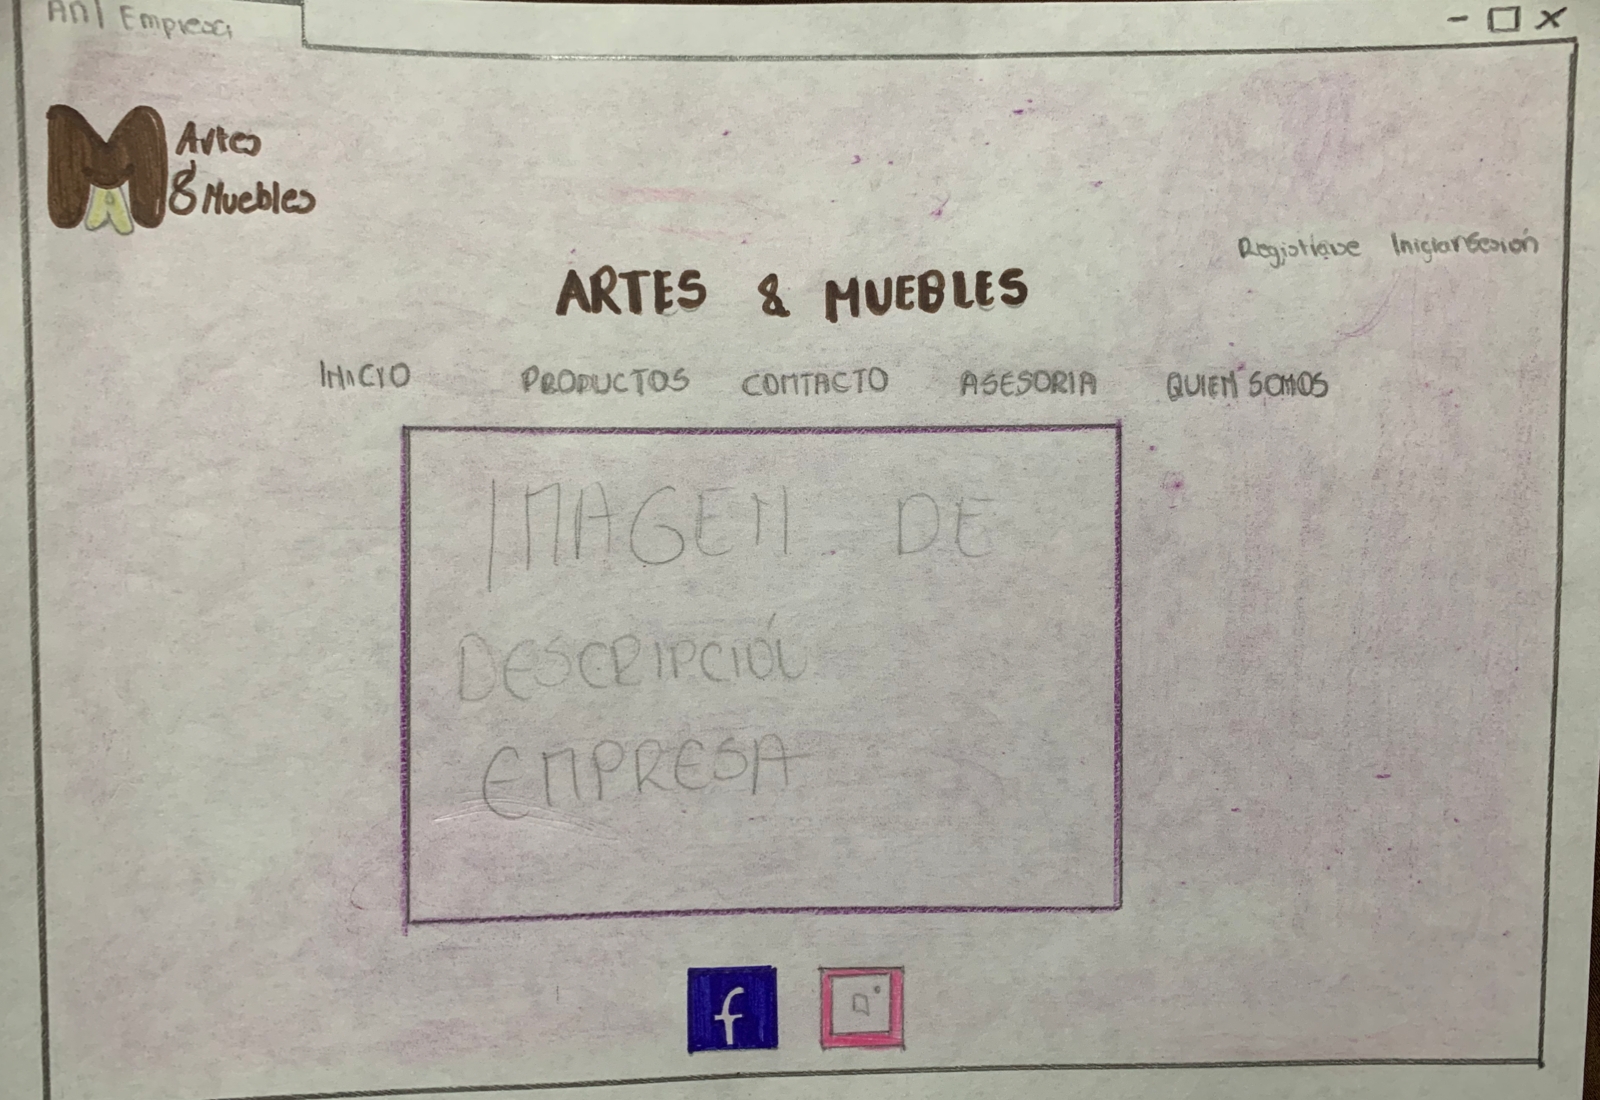 Empresa
Artes
& Muebles
Registrese Iniciar sesión
ARTES & MUEBLES
INICIO PRODUCTOS CONTACTO ASESORIA QUIEN SOMOS
IMAGEN DE
DESCRIPCIÓN
EMPRESA
f